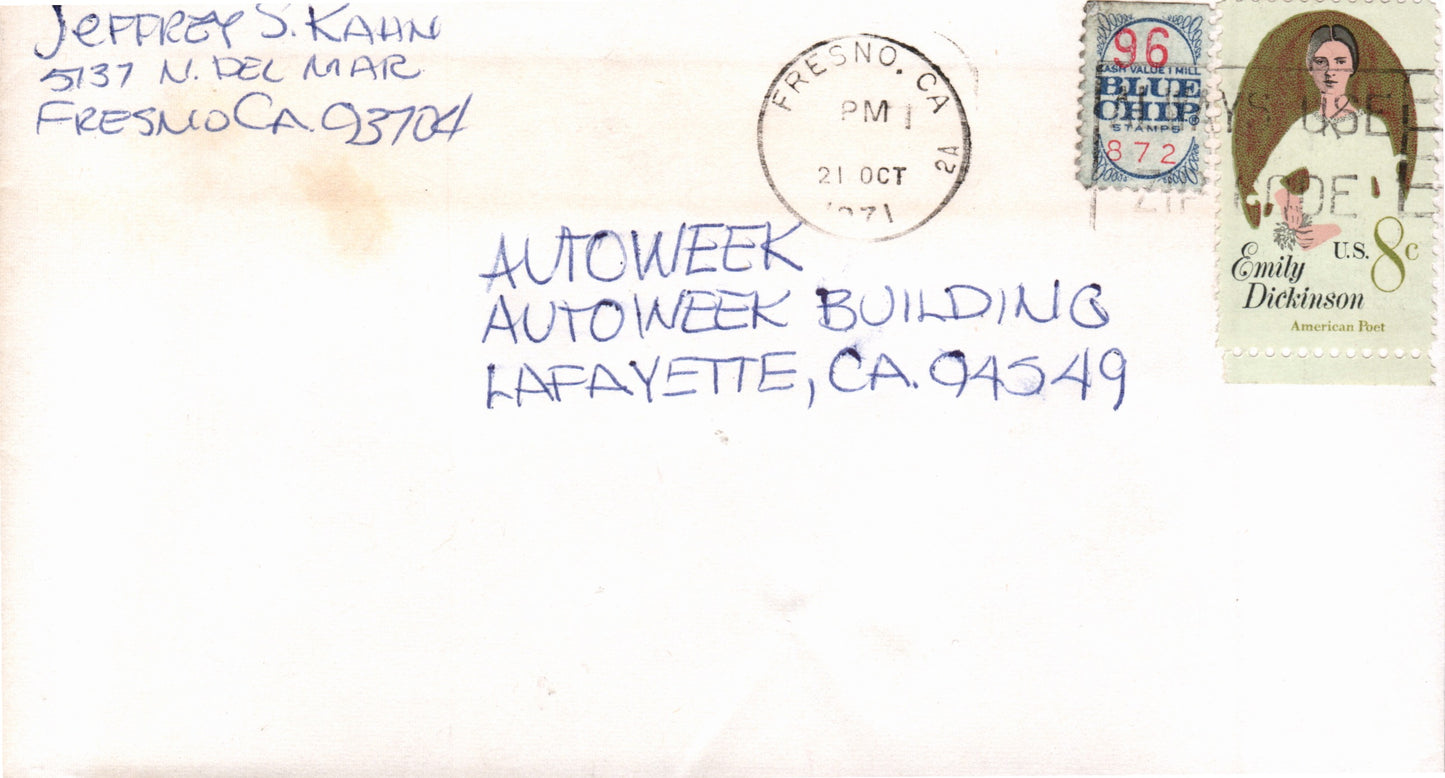 JEFFREY S. KAHN
5737 N. DEL MAR
FRESNO CA. 93704
FRESNO, CA
PM
2A
21 OCT
1971
96
CASH VALUE 1 MILL
BLUE
CHIP®
STAMPS
872
ALWAYS USE
ZIP CODE
U.S. 8c
Emily
Dickinson
American Poet
AUTOWEEK
AUTOWEEK BUILDING
LAFAYETTE, CA. 94549